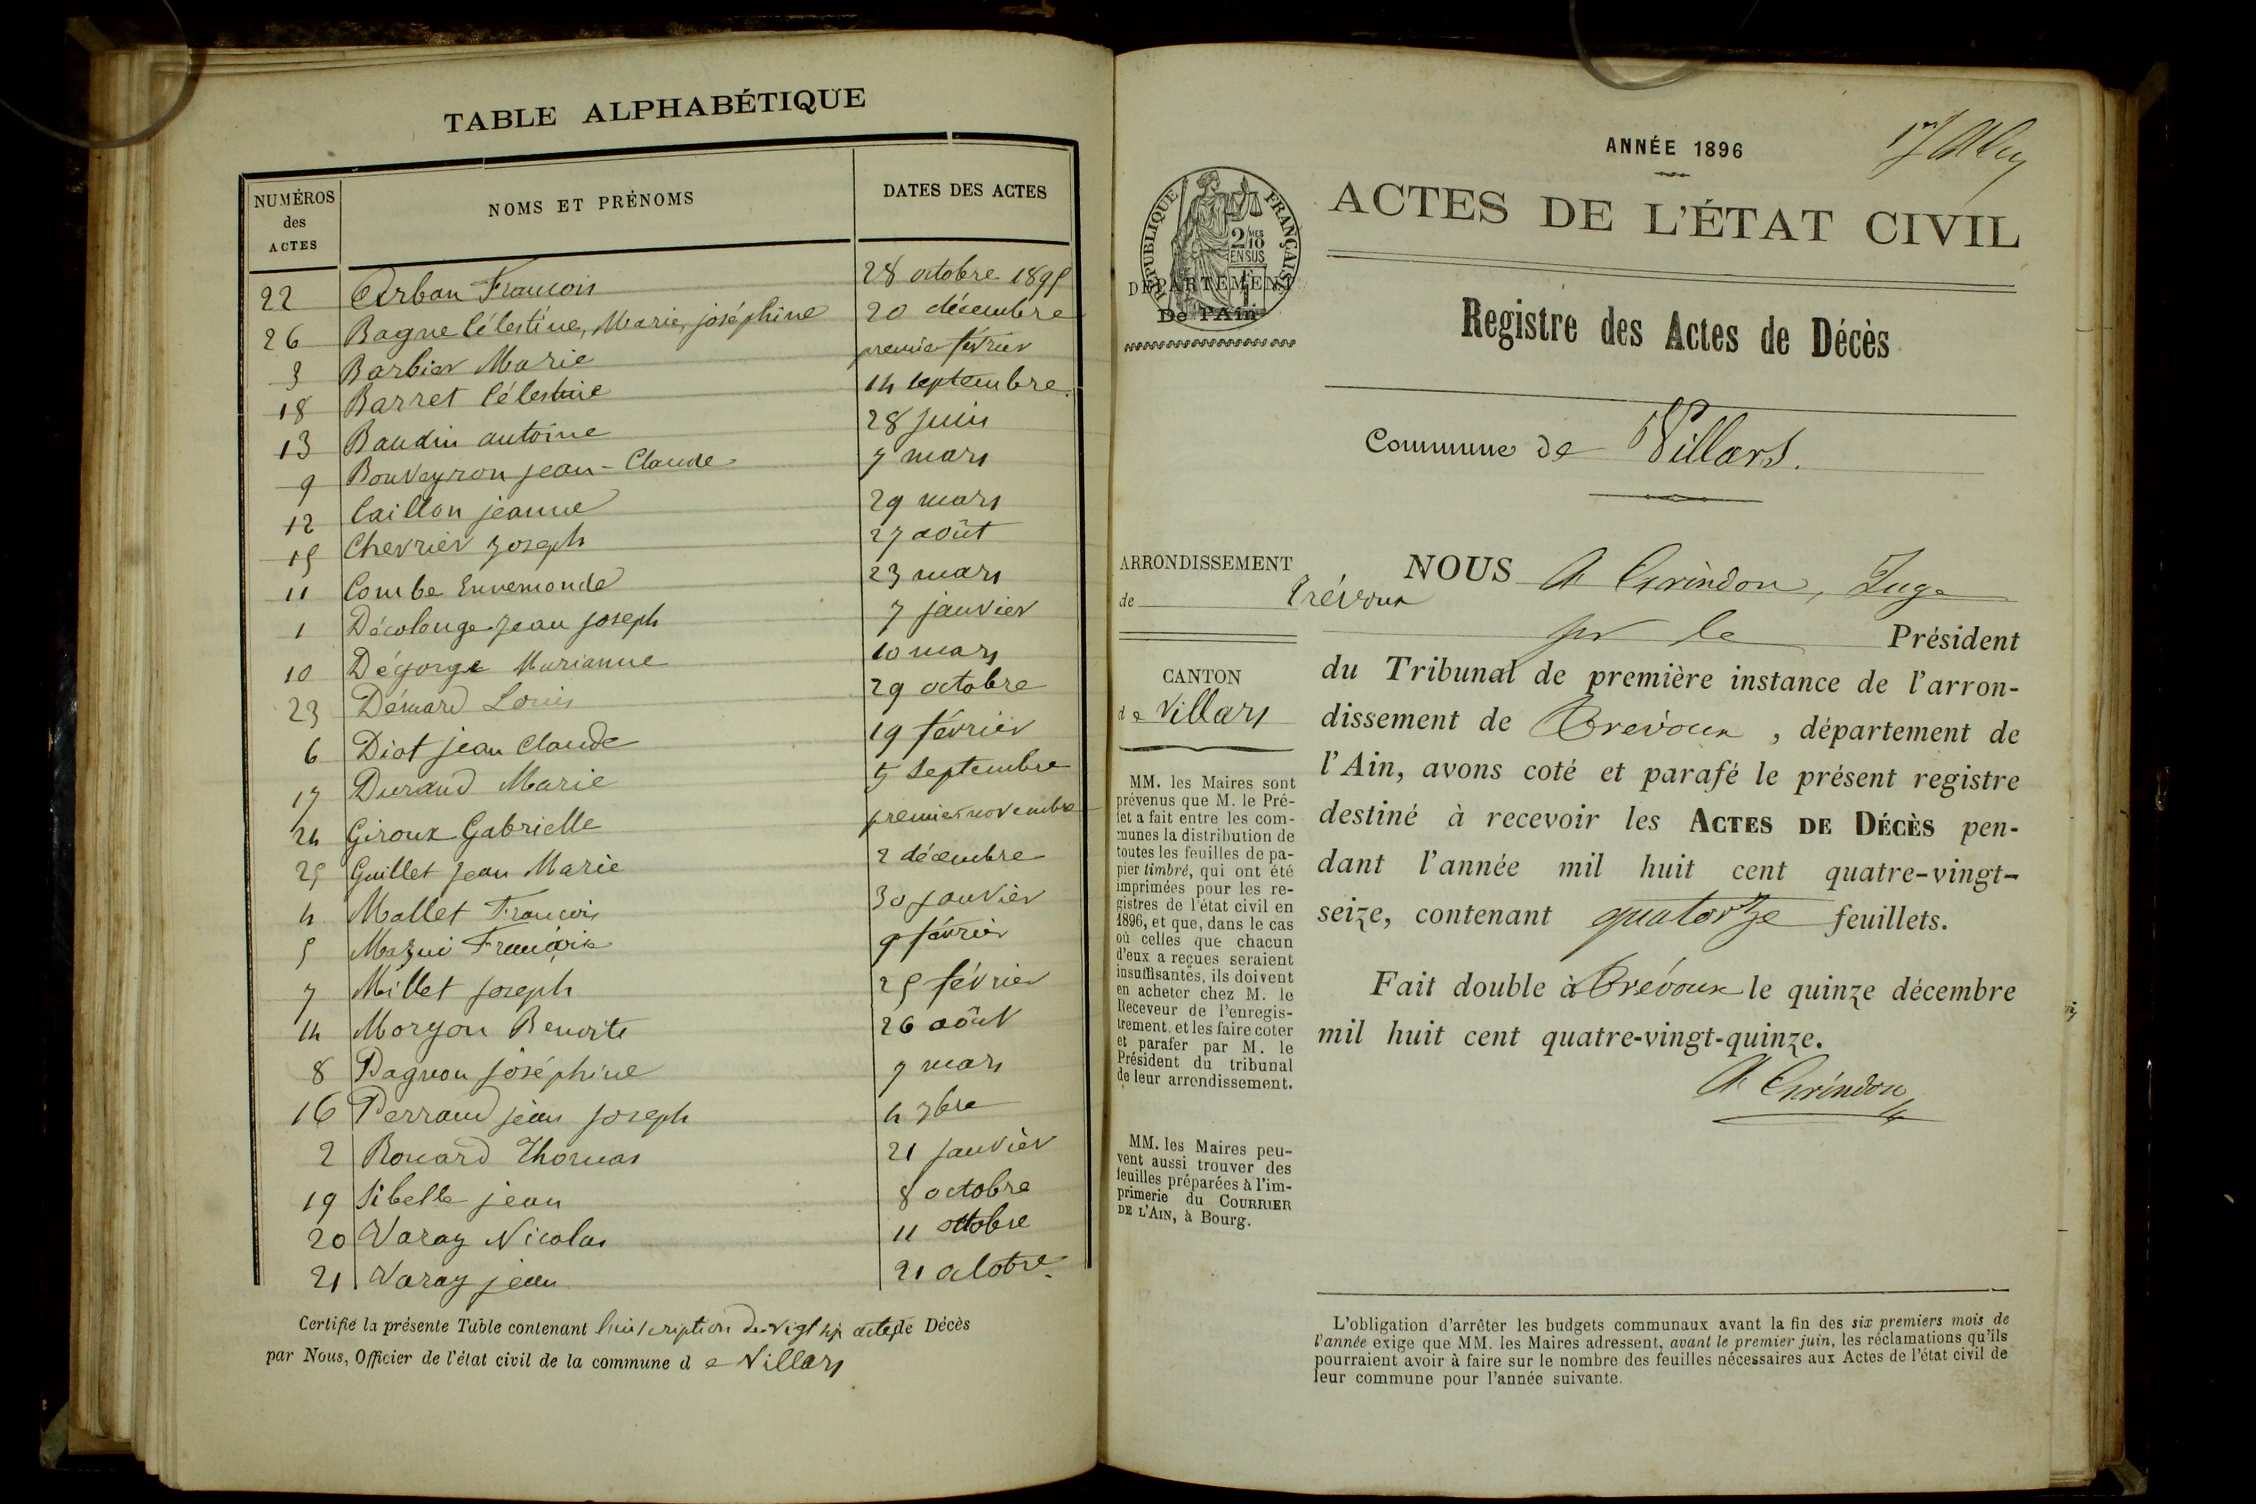 TABLE ALPHABÉTIQUE
NUMÉROS des ACTES NOMS ET PRÉNOMS DATES DES ACTES
22 Arban François 28 octobre 1895
26 Bagne Célestine, Marie, joséphine 20 décembre
3 Barbier Marie premier février
18 Barret Célestine 14 septembre
13 Baudin antoine 28 juin
9 Bouveyron jean-Claude 7 mars
12 Caillon jeanne 29 mars
15 Chevrier Joseph 27 août
11 Combe Ennemonde 23 mars
1 Décolonge Jean Joseph 7 janvier
10 Dégorge Marianne 10 mars
23 Démard Louis 29 octobre
6 Diot jean Claude 19 février
17 Durand Marie 5 septembre
24 Giroux Gabrielle premier novembre
25 Guillet Jean Marie 2 décembre
4 Mallet François 30 janvier
5 Mazui 9 février
7 Millet Joseph 25 février
14 Morgon Benoite 26 août
8 Pagnon joséphine 7 mars
16 Perraud jean Joseph 4 7bre
2 Rouard Thomas 21 janvier
19 Sibelle jean 8 octobre
20 Varay Nicolas 11 octobre
21 Varay jean 21 octobre
Certifié la présente Table contenant l'inscription de vigt six actes de Décès
par Nous, Officier de l'état civil de la commune d e Villars
ANNÉE 1896
ACTES DE L'ÉTAT CIVIL
RÉPUBLIQUE FRANÇAISE
2/10 MES
EN SUS
DÉPARTEMENT
De l'Ain
Registre des Actes de Décès
Commune de Villars.
ARRONDISSEMENT
de Trévoux
CANTON
de Villars
MM. les Maires sont
prévenus que M. le Pré-
fet a fait entre les com-
munes la distribution de
toutes les feuilles de pa-
pier timbré, qui ont été
imprimées pour les re-
gistres de l'état civil en
1896, et que, dans le cas
où celles que chacun
d'eux a reçues seraient
insuffisantes, ils doivent
en acheter chez M. le
Receveur de l'enregis-
trement, et les faire coter
et parafer par M. le
Président du tribunal
de leur arrondissement.
MM. les Maires peu-
vent aussi trouver des
feuilles préparées à l'im-
primerie du COURRIER
DE L'AIN, à Bourg.
NOUS A Grindon, Juge
pr le Président
du Tribunal de première instance de l'arron-
dissement de Trévoux, département de
l'Ain, avons coté et parafé le présent registre
destiné à recevoir les ACTES DE DÉCÈS pen-
dant l'année mil huit cent quatre-vingt-
seize, contenant quatorze feuillets.
Fait double à Trévoux le quinze décembre
mil huit cent quatre-vingt-quinze.
A Grindon
L'obligation d'arrêter les budgets communaux avant la fin des six premiers mois de
l'année exige que MM. les Maires adressent, avant le premier juin, les réclamations qu'ils
pourraient avoir à faire sur le nombre des feuilles nécessaires aux Actes de l'état civil de
leur commune pour l'année suivante.